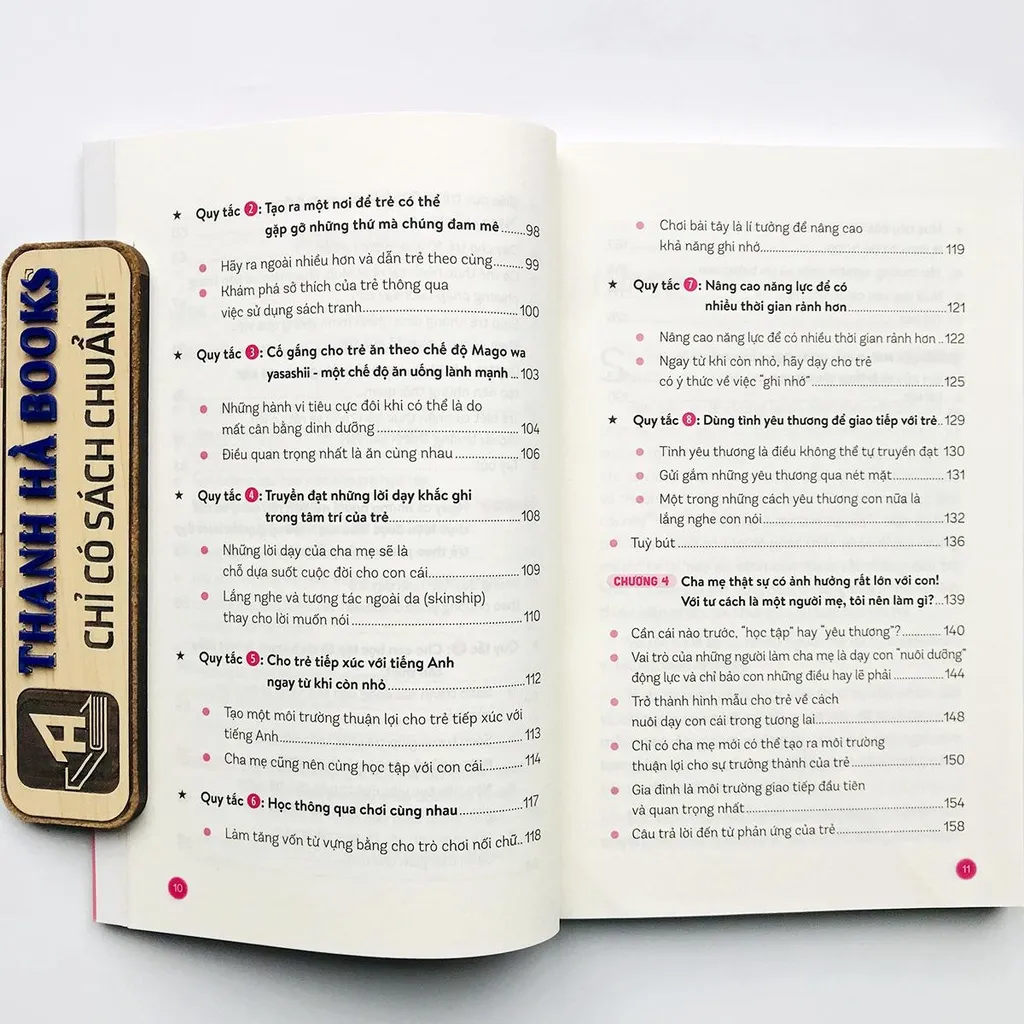 THANH HÀ BOOKS
CHỈ CÓ SÁCH CHUẨN!
★ Quy tắc 2: Tạo ra một nơi để trẻ có thể
gặp gỡ những thứ mà chúng đam mê ......98
• Hãy ra ngoài nhiều hơn và dẫn trẻ theo cùng........99
• Khám phá sở thích của trẻ thông qua
việc sử dụng sách tranh........100
★ Quy tắc 3: Cố gắng cho trẻ ăn theo chế độ Mago wa
yasashii - một chế độ ăn uống lành mạnh ...103
• Những hành vi tiêu cực đôi khi có thể là do
mất cân bằng dinh dưỡng........104
• Điều quan trọng nhất là ăn cùng nhau........106
★ Quy tắc 4: Truyền đạt những lời dạy khắc ghi
trong tâm trí của trẻ........108
• Những lời dạy của cha mẹ sẽ là
chỗ dựa suốt cuộc đời cho con cái........109
• Lắng nghe và tương tác ngoài da (skinship)
thay cho lời muốn nói........110
★ Quy tắc 5: Cho trẻ tiếp xúc với tiếng Anh
ngay từ khi còn nhỏ........112
• Tạo một môi trường thuận lợi cho trẻ tiếp xúc với
tiếng Anh........113
• Cha mẹ cũng nên cùng học tập với con cái........114
★ Quy tắc 6: Học thông qua chơi cùng nhau........117
• Làm tăng vốn từ vựng bằng cho trò chơi nối chữ..118
10
• Chơi bài tây là lí tưởng để nâng cao
khả năng ghi nhớ........119
★ Quy tắc 7: Nâng cao năng lực để có
nhiều thời gian rảnh hơn........121
• Nâng cao năng lực để có nhiều thời gian rảnh hơn..122
• Ngay từ khi còn nhỏ, hãy dạy cho trẻ
có ý thức về việc "ghi nhớ"........125
★ Quy tắc 8: Dùng tình yêu thương để giao tiếp với trẻ..129
• Tình yêu thương là điều không thể tự truyền đạt 130
• Gửi gắm những yêu thương qua nét mặt........131
• Một trong những cách yêu thương con nữa là
lắng nghe con nói........132
• Tuỳ bút........136
CHƯƠNG 4 Cha mẹ thật sự có ảnh hưởng rất lớn với con!
Với tư cách là một người mẹ, tôi nên làm gì?...139
• Cần cái nào trước, "học tập" hay "yêu thương"?........140
• Vai trò của những người làm cha mẹ là dạy con "nuôi dưỡng"
động lực và chỉ bảo con những điều hay lẽ phải........144
• Trở thành hình mẫu cho trẻ về cách
nuôi dạy con cái trong tương lai........148
• Chỉ có cha mẹ mới có thể tạo ra môi trường
thuận lợi cho sự trưởng thành của trẻ........150
• Gia đình là môi trường giao tiếp đầu tiên
và quan trọng nhất........154
• Câu trả lời đến từ phản ứng của trẻ........158
11